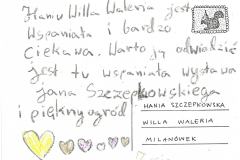 Hamu Willa Waleria jest
Wspaniała i bardzo
ciekawa. Warto ją odwiedzić
jest tu wspaniała wystawa
Jana Szczepkowskiego
i piękny ogród
HANIA SZCZEPKOWSKA
WILLA WALERIA
MILANÓWEK